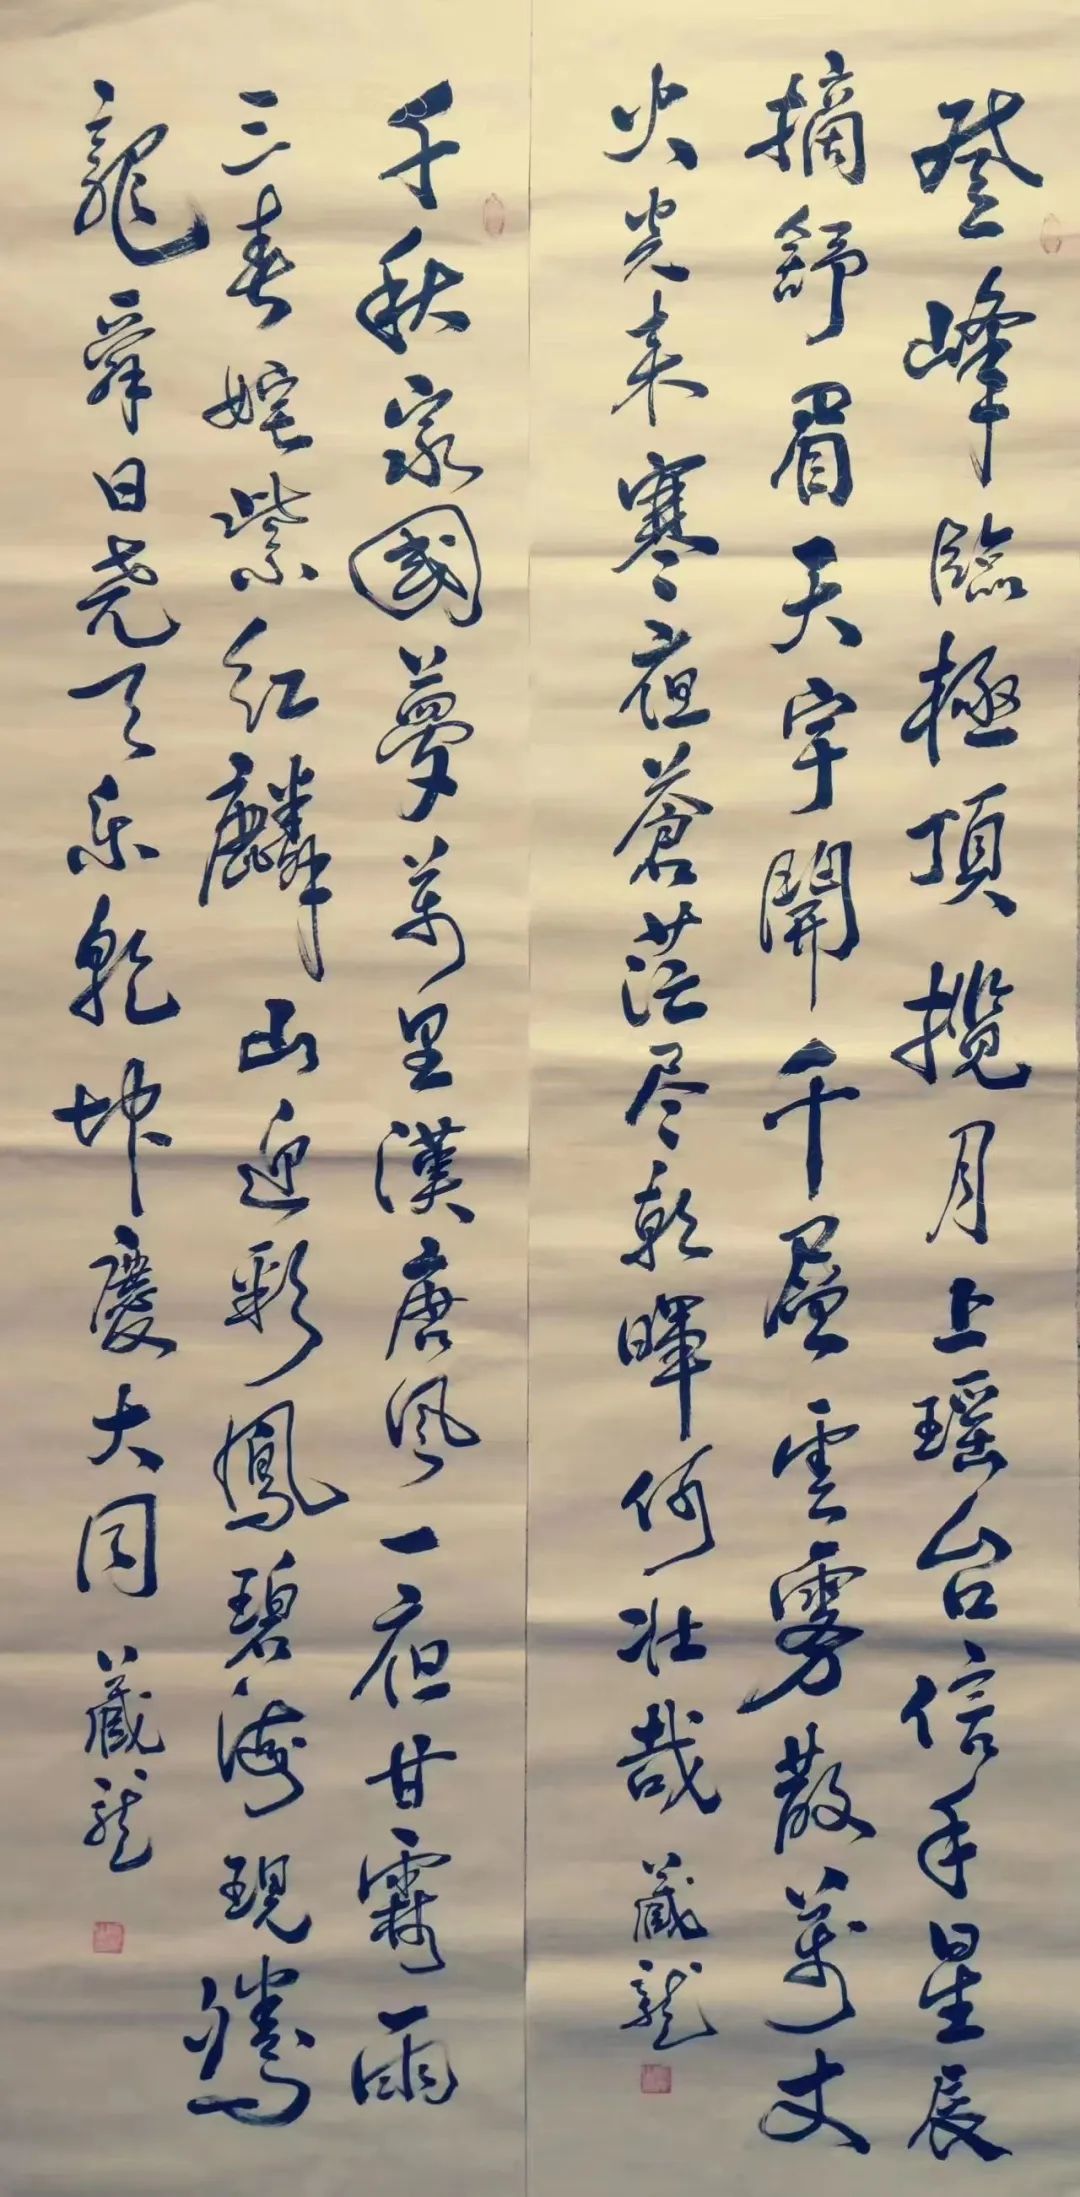 登峰臨極頂攬月上瑶台信手星辰
摘舒眉天宇開千層雲雾散萬丈
火光来寒夜蒼茫尽乾暉何壮哉
藏龍
千秋家國夢萬里漢唐風一夜甘霖雨
三春姹紫红麟山迎彩鳳碧海現騰
龍舜日尧天乐乾坤慶大同
藏龍